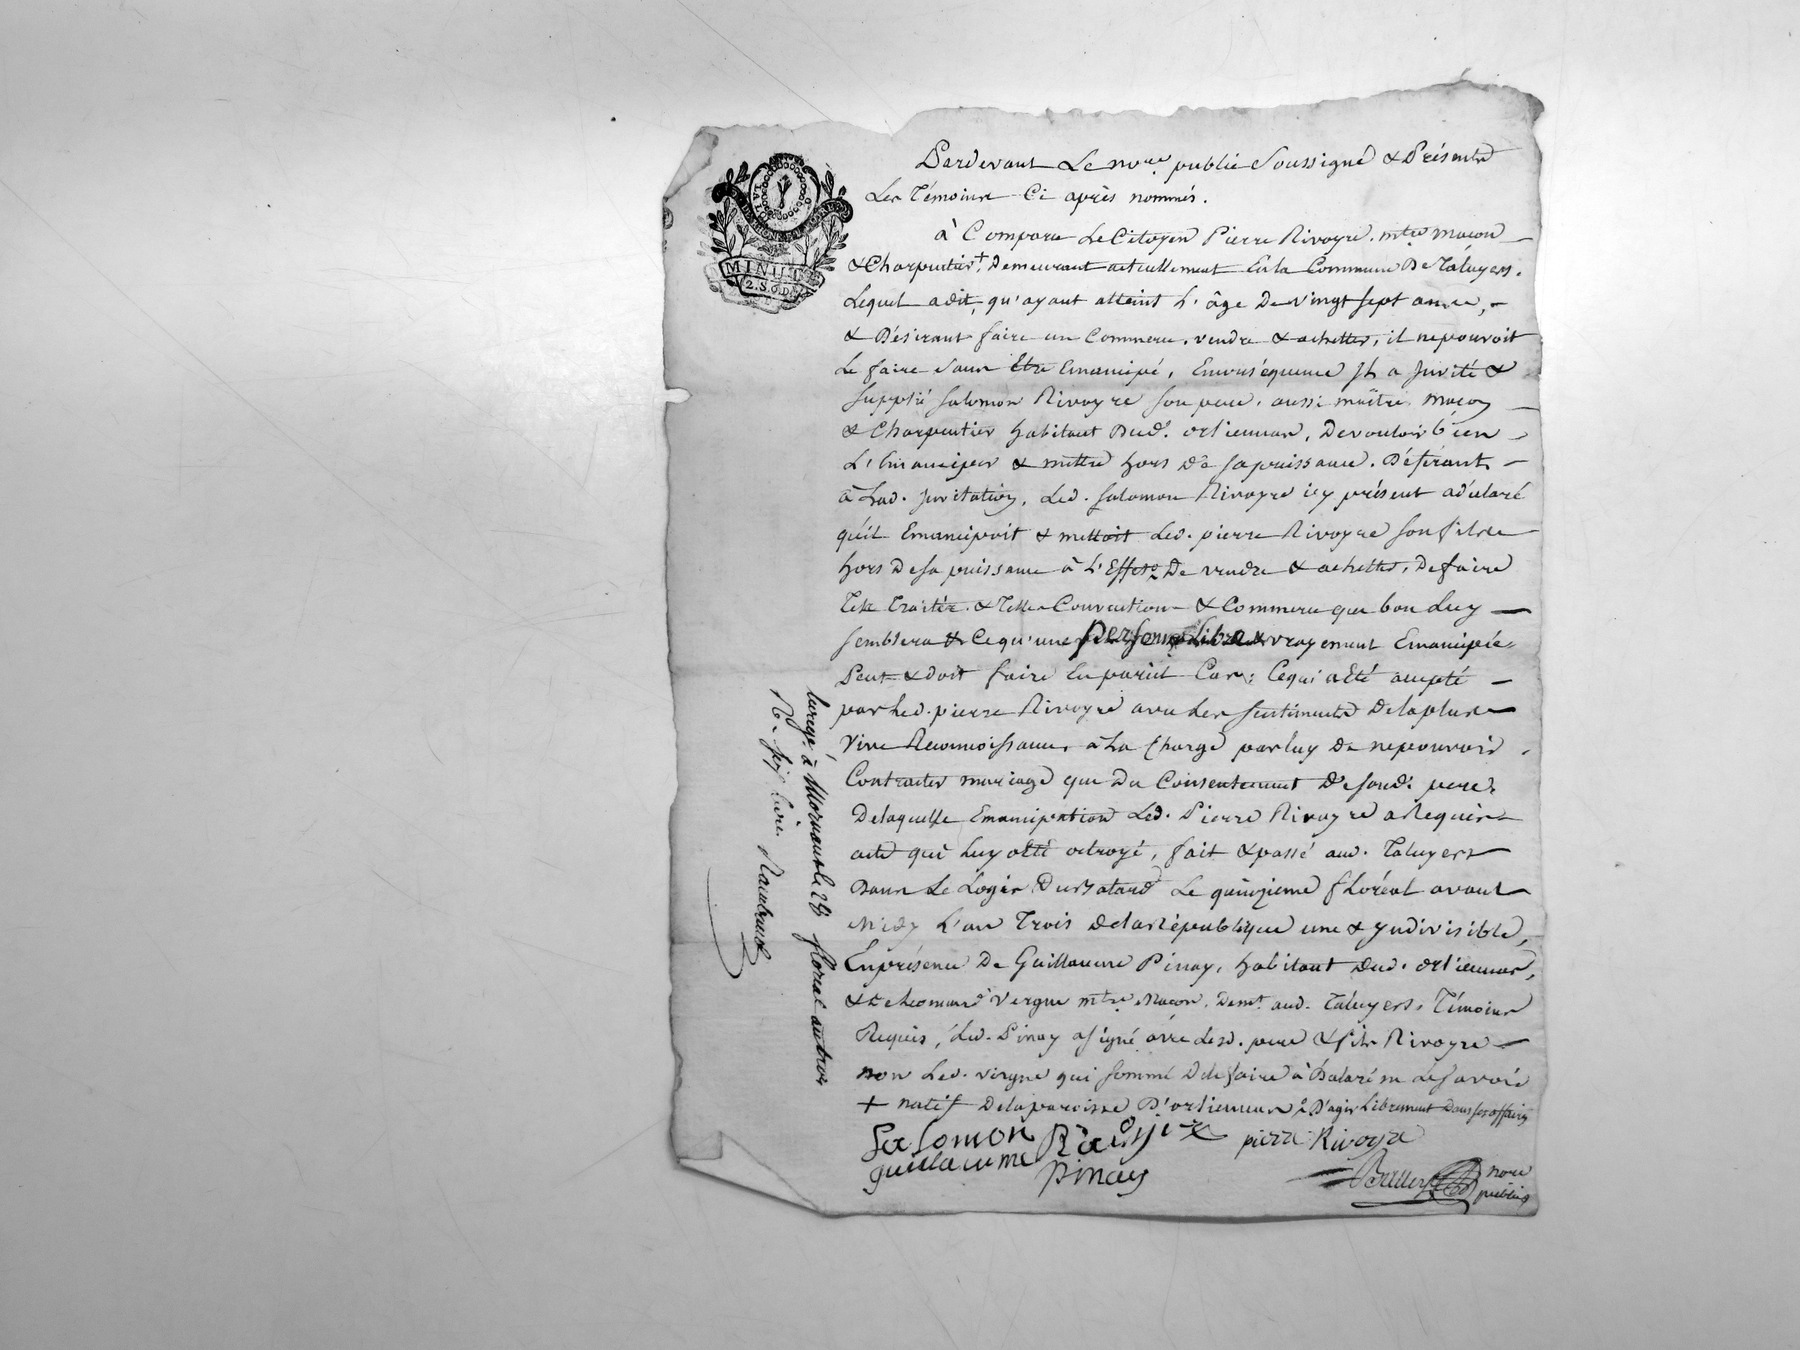 MINUT
2.S.6.D.
Pardevant Le no.re public Soussigné & Présents
Les Témoins Ci après nommés.
à Comparu Le Citoyen Pierre Rivoyre. m.tre macon
& Charpentier + Demeurant actuellement En la Commune De Taluyers.
Lequel a dit, qu'ayant atteint L'âge De vingt sept années,
& Désirant faire un Commerce, vendre & achetter, il ne pouvoit
Le faire Sans Etre Emancipé, En conséquence Il a Jnvité &
supplié Salomon Rivoyre son pere, aussi maître macon
& Charpentier habitant Dud. orliennas, De vouloir bien
L'Emanciper & mettre hors De sa puissance. Déférant
à Lad. Jnvitation, Led. Salomon Rivoyre icy présent a déclaré
qu'il Emancipoit & mettoit Led. pierre Rivoyre son fils
hors De sa puissance à L'Effet 2 De vendre & achetter, De faire
Tels Traités & Telles Conventions & Commerce que bon Luy
semblera & Ce qu'une personne Libre & vrayement Emancipée
Peut & doit faire En pareil Cas; Ce qui a Eté accepté
par Led. pierre Rivoyre avec Les sentiments De la plus
vive Reconnoissance, à La Charge par luy De ne pouvoir
Contracter mariage que Du Consentement De sond. pere,
De laquelle Emancipation Led. Pierre Rivoyre a Requis
acte qui Luy a Eté octroyé, fait & passé aud. Taluyers
Dans Le Logis Du Le quinzieme floréal avant
Midy L'an Trois De la République une & Jndivisible,
En présence De Guillaume Pinay, habitant Dud. orliennas,
& vergne m.tre Macon, Dem.t aud. Taluyers, Témoins
Requis, Led. Pinay a signé avec Lesd. pere & fils Rivoyre
non Led. vergne qui sommé De le faire a Déclaré ne Le savoir
+ natif De la paroisse D'orliennas 2 D'agir Librement Dans ses affaires
Salomon pierre Rivoyre
guillaume pinay
no.re
public
à Mornant le 28 floréal an trois